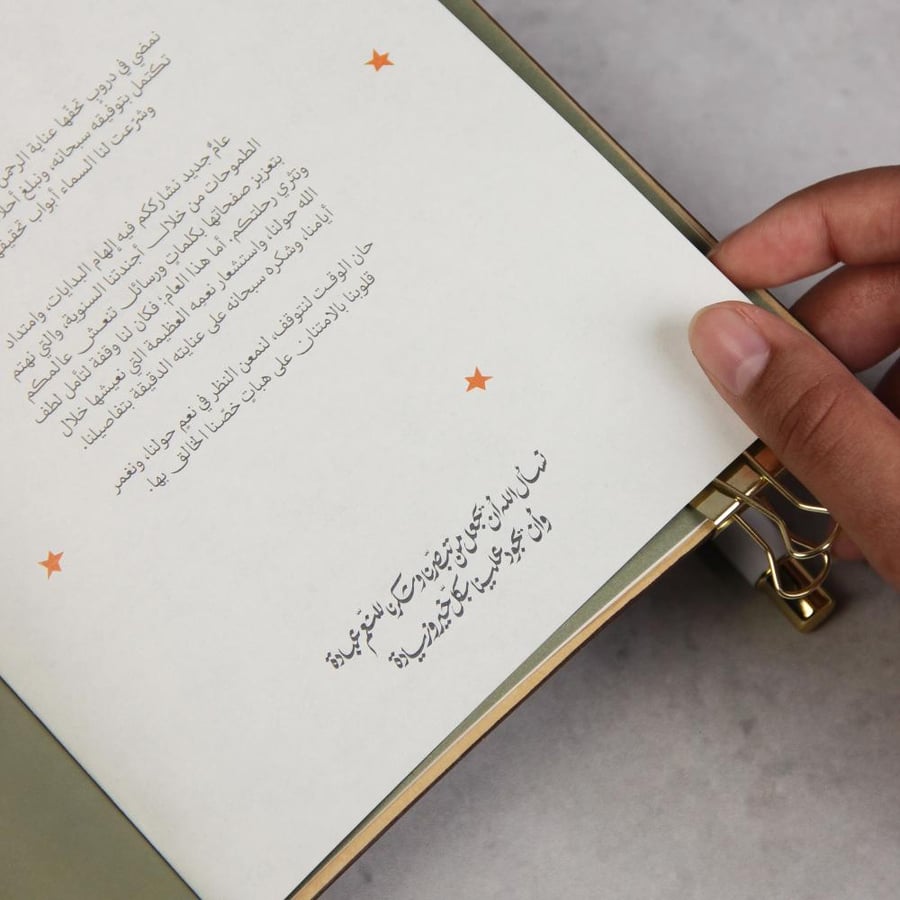 نمضي في دروبٍ تحفّها عناية الرحمن
تكتمل بتوفيقه سبحانه، ونبلغ
وشرّعت لنا السماء أبواب
عامٌ جديد نشارككم فيه إلهام البدايات، وامتداد
الطموحات من خلال أجندتنا السنوية، والتي نهتم
بتعزيز صفحاتها بكلماتٍ ورسائل تنعش عالمكم
وتثري رحلتكم. أما هذا العام؛ فكان لنا وقفة لتأمل لطف
الله حولنا، واستشعار نعمه العظيمة التي نعيشها خلال
أيامنا، وشكره سبحانه على عنايته الدقيقة بتفاصيلنا.
حان الوقت لنتوقف، لنمعن النظر في نعمٍ حولنا، ونغمر
قلوبنا بالامتنان على هباتٍ خصّنا الخالق بها.
نسأل الله أن يجعل من تبصّرنا وشكرنا للنّعم عبادة
وأن يجود علينا بكلّ خيرٍ وزيادة